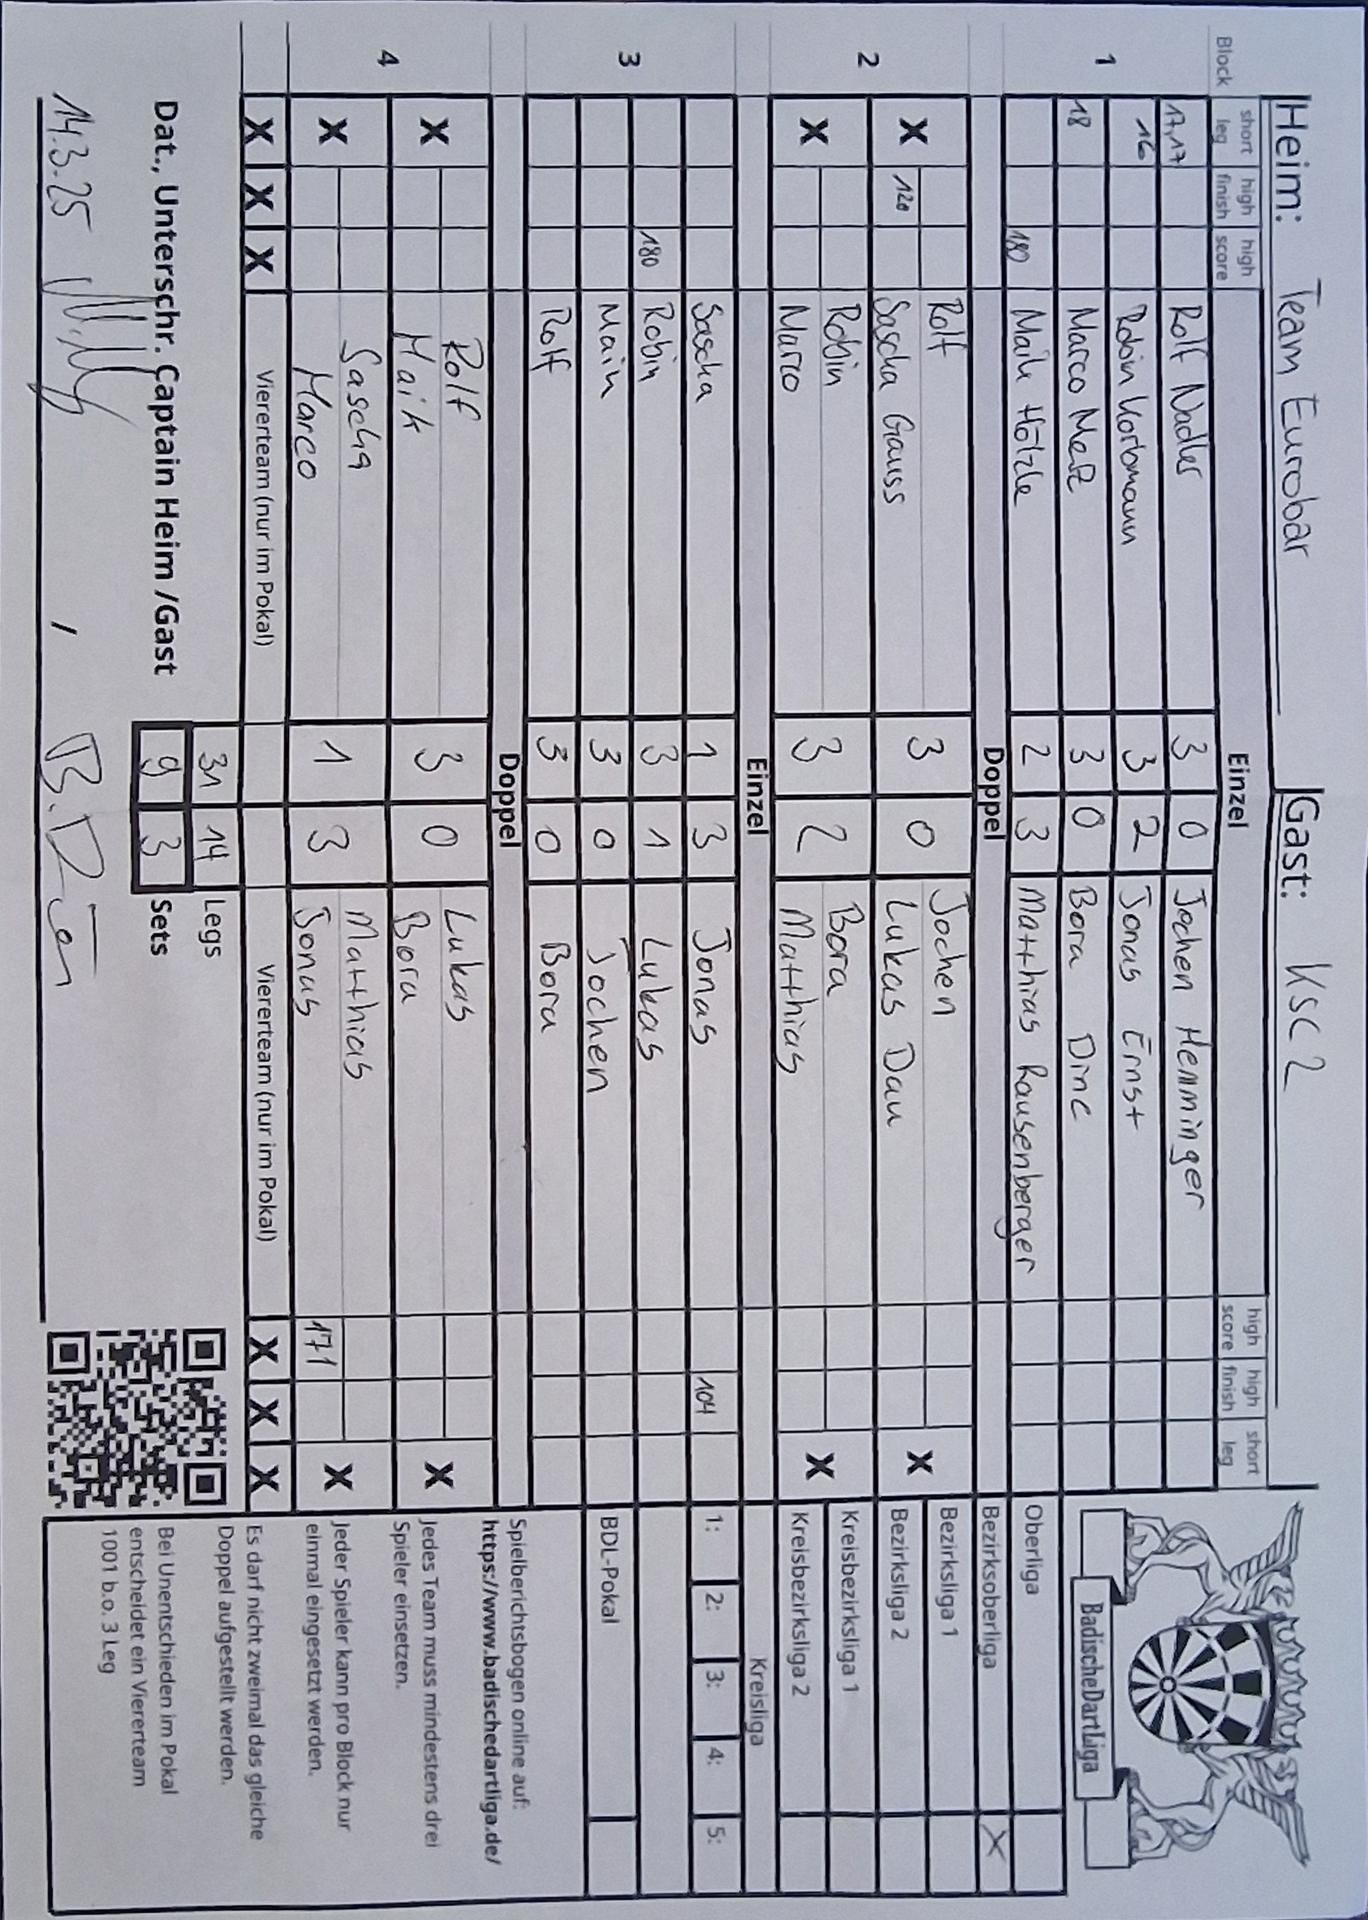 Heim: Team Eurobar Gast: KSC 2
Block short leg high finish high score Einzel high score high finish short leg
1
17,17 Rolf Nadler 3 0 Jochen Hemminger
16 Robin Korbmann 3 2 Jonas Ernst
18 Marco Metz 3 0 Bora Dinc
180 Maik Hölzle 2 3 Matthias Rausenberger
Doppel
2
Rolf Jochen
X 120 Sascha Gauss 3 0 Lukas Dau X
Robin Bora
X Marco 3 2 Matthias X
Einzel
3
Sascha 1 3 Jonas 104
180 Robin 3 1 Lukas
Maik 3 0 Jochen
Rolf 3 0 Bora
Doppel
4
Rolf Lukas
X Maik 3 0 Bora X
Sascha Matthias
X Marco 1 3 Jonas 171 X
X X X Viererteam (nur im Pokal) Viererteam (nur im Pokal) X X X
31 14 Legs
9 3 Sets
Dat., Unterschr. Captain Heim /Gast
14.3.25
BadischeDartLiga
Oberliga
Bezirksoberliga X
Bezirksliga 1
Bezirksliga 2
Kreisbezirksliga 1
Kreisbezirksliga 2
Kreisliga
1: 2: 3: 4: 5:
BDL-Pokal
Spielberichtsbogen online auf:
https://www.badischedartliga.de/
Jedes Team muss mindestens drei
Spieler einsetzen.
Jeder Spieler kann pro Block nur
einmal eingesetzt werden.
Es darf nicht zweimal das gleiche
Doppel aufgestellt werden.
Bei Unentschieden im Pokal
entscheidet ein Viererteam
1001 b.o. 3 Leg